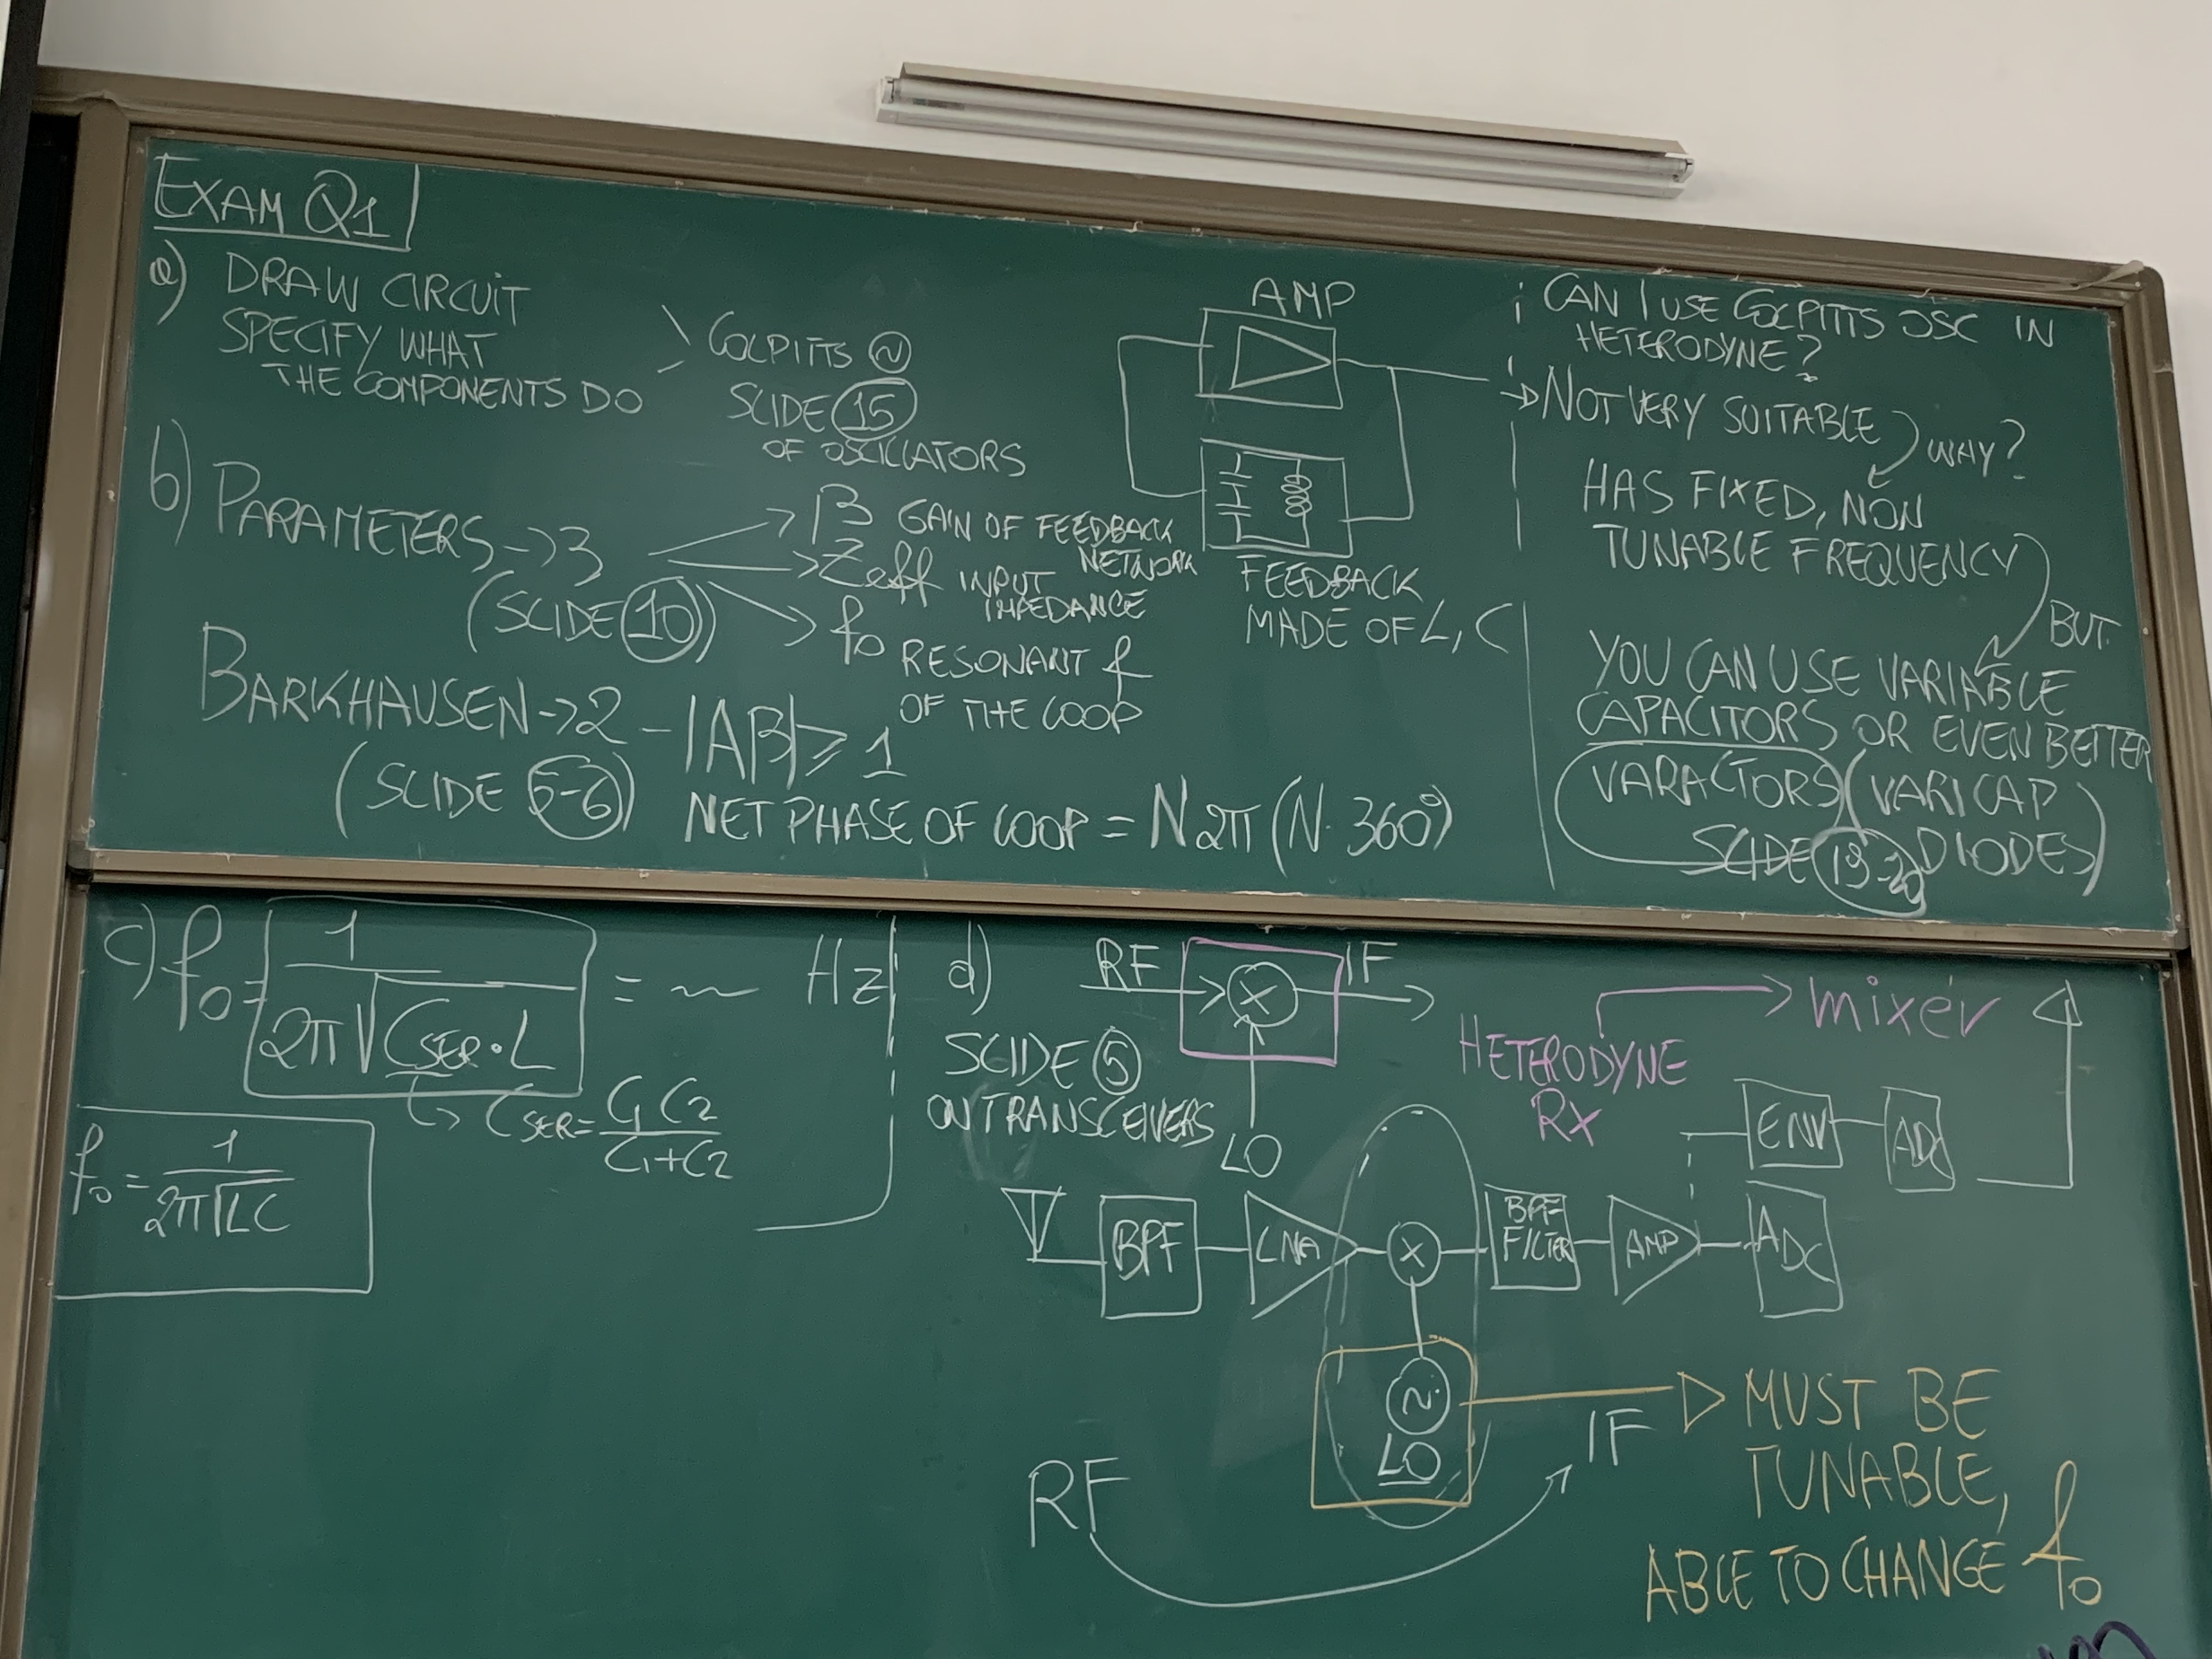 EXAM Q1
a) DRAW CIRCUIT
SPECIFY WHAT
THE COMPONENTS DO
COLPITTS ~
SLIDE 15
OF OSCILLATORS
AMP
FEEDBACK
MADE OF L, C
b) PARAMETERS → 3
(SLIDE 10)
β GAIN OF FEEDBACK
NETWORK
Zeff INPUT
IMPEDANCE
f0 RESONANT f
OF THE LOOP
BARKHAUSEN → 2 - |AB| ≥ 1
(SLIDE 5-6) NET PHASE OF LOOP = N 2π (N · 360°)
CAN I USE COLPITTS OSC IN
HETERODYNE?
→ NOT VERY SUITABLE
WHY?
HAS FIXED, NON
TUNABLE FREQUENCY
BUT
YOU CAN USE VARIABLE
CAPACITORS OR EVEN BETTER
VARACTORS (VARICAP
SLIDE 19-20 DIODES)
c) f0 = 1 / 2π√(CSER · L) = ~ Hz
↳ CSER = C1 C2 / C1 + C2
f0 = 1 / 2π√LC
d) RF X IF
LO
SLIDE 5
ON TRANSCEIVERS
HETERODYNE
RX
mixer
ENV ADC
BPF LNA X BPF
FILTER AMP ADC
~
LO
RF IF
MUST BE
TUNABLE,
ABLE TO CHANGE f0